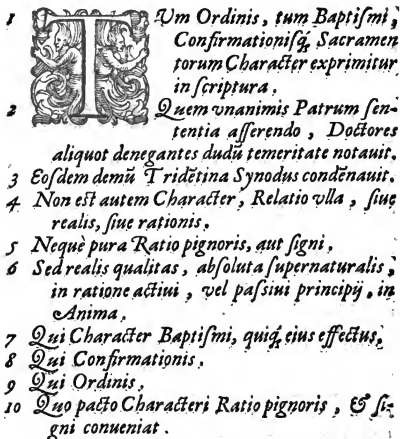 1 TVm Ordinis, tum Baptiſmi,
Confirmationiſq́; Sacramen
torum Character exprimitur
in ſcriptura.
2 Quem vnanimis Patrum ſen-
tentia aſſerendo, Doctores
aliquot denegantes dudū temeritate notauit.
3 Eoſdem demū Tridētina Synodus condēnauit.
4 Non eſt autem Character, Relatio vlla, ſiue
realis, ſiue rationis.
5 Nequè pura Ratio pignoris, aut ſigni.
6 Sed realis qualitas, abſoluta ſupernaturalis,
in ratione actiui, vel paſſiui principij, in
Anima.
7 Qui Character Baptiſmi, quiq́; eius effectus.
8 Qui Confirmationis.
9 Qui Ordinis.
10 Quo pacto Characteri Ratio pignoris, & ſi-
gni conueniat.